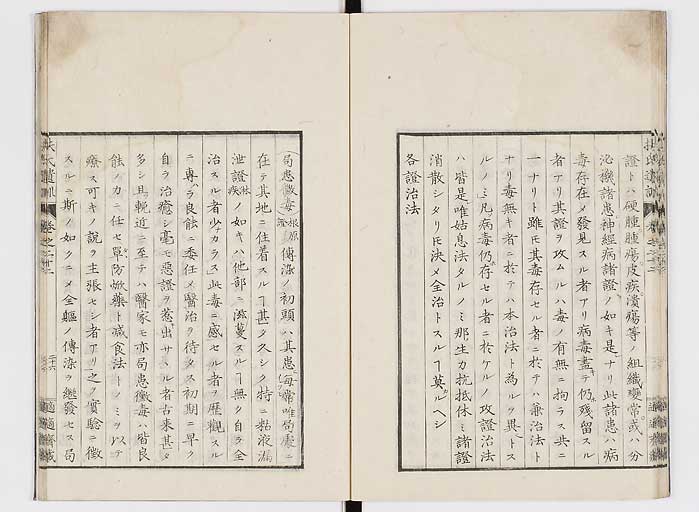 證トハ硬腫腫瘍皮疾潰瘍等ノ組織變常或ハ分
泌機諸患神經病諸證ノ如キ是ナリ此諸患ハ病
毒存在メ發見スル者アリ病毒盡テ仍殘留スル
者アリ其證ヲ攻ムルハ毒ノ有無ニ拘ラス共ニ
一ナリト雖モ其毒存セル者ニ於テハ兼治法ト
ナリ毒無キ者ニ於テハ本治法ト為ルヲ異トス
ルノミ凡病毒仍存セル者ニ於ケルノ攻證治法
ハ皆是唯姑息法タルノミ那生力抗抵休ミ諸證
消散シタリ𪜈決メ全治トスルヿ莫ルヘシ
各證治法
局患黴毒 根原證 傳染ノ初頭ハ其患毎常唯局處ニ
在テ其地ニ住着スルヿ甚タ久シク特ニ粘液漏
泄證 淋疾 ノ如キハ他部ニ滋蔓スルヿ無ク自ラ全
治スル者少カラス此毒ニ感セル者ヲ歴觀スル
ニ專ハラ良蝕ニ委任メ醫治ヲ待タス初期ニ早ク
自ラ治癒シ毫モ惡證ヲ惹出サヽル者古来甚タ
多シ且輓近ニ至テハ醫家モ亦局患黴毒ハ皆良
蝕ノ力ニ任セ單防焮藥ト減食法トノミヲ以テ
療ス可キノ說ヲ主張セシ者アリ之ヲ實驗ニ徴
スルニ斯ノ如クニメ全軀傳染ヲ繼發セス局
扶氏遺訓 卷之二十二 二十六 適適齋藏